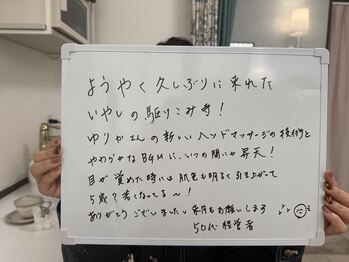 ようやく久しぶりに来れた
いやしの駆りこみ寺！
ゆりかさんの新しいヘッドマッサージの技術と
やわらかなBGMに、いつの間にか昇天！
目が覚めた時には肌色も明るく引き上がって
5歳？若くなってる〜！
ありがとうございました 来月もお願いします
50代 経営者